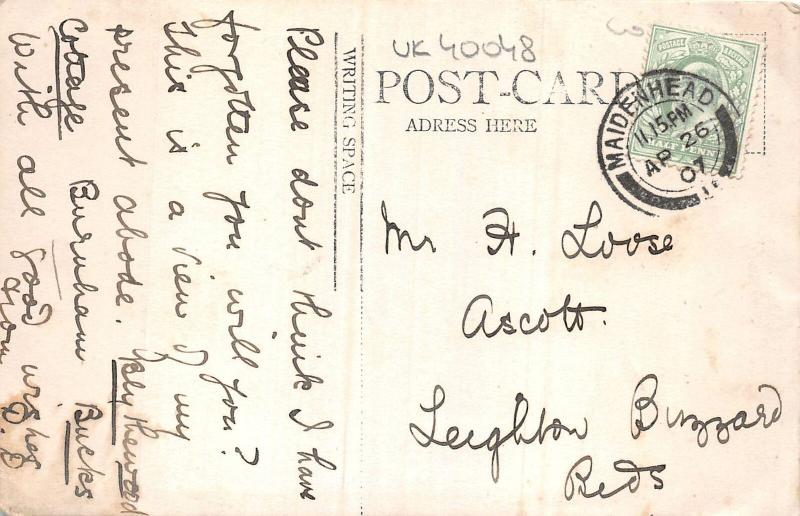 UK 40048
POST-CARD
ADRESS HERE
WRITING SPACE
POSTAGE
MAIDENHEAD
11.15 PM
AP 26
07
Mr H. Loose
Ascott.
Leighton Buzzard
Beds
Please dont think I have
forgotten you will you?
This is a view of my
present abode.
Cottage Burnham Bucks
With all good wishes
from